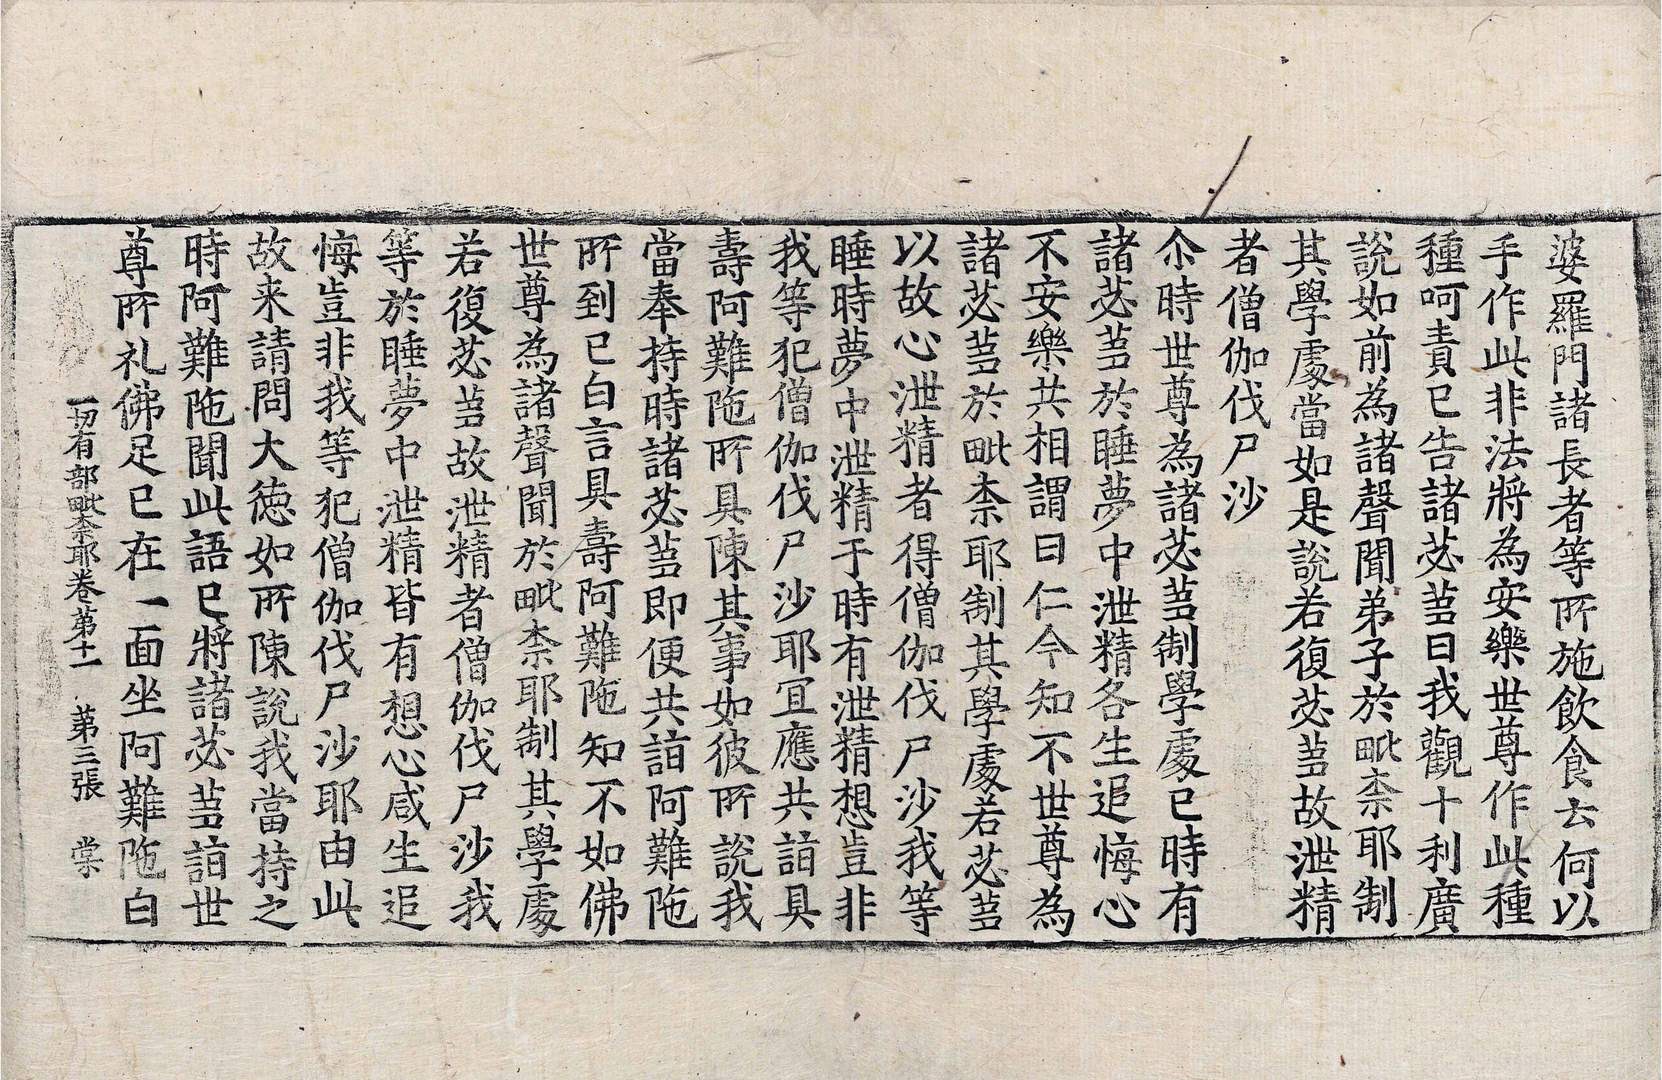 婆羅門諸長者等所施飲食云何以
手作此非法將為安樂世尊作此種
種呵責已告諸苾芻曰我觀十利廣
說如前為諸聲聞弟子於毗柰耶制
其學處當如是說若復苾芻故泄精
者僧伽伐尸沙
尒時世尊為諸苾芻制學處已時有
諸苾芻於睡夢中泄精各生追悔心
不安樂共相謂曰仁今知不世尊為
諸苾芻於毗柰耶制其學處若苾芻
以故心泄精者得僧伽伐尸沙我等
睡時夢中泄精于時有泄精想豈非
我等犯僧伽伐尸沙耶冝應共詣具
壽阿難陁所具陳其事如彼所說我
當奉持時諸苾芻即便共詣阿難陁
所到已白言具壽阿難陁知不如佛
世尊為諸聲聞於毗柰耶制其學處
若復苾芻故泄精者僧伽伐尸沙我
等於睡夢中泄精皆有想心咸生追
悔豈非我等犯僧伽伐尸沙耶由此
故来請問大徳如所陳說我當持之
時阿難陁聞此語已將諸苾芻詣世
尊所礼佛足已在一面坐阿難陁白
一切有部毗柰耶卷第十一 第三張 棠